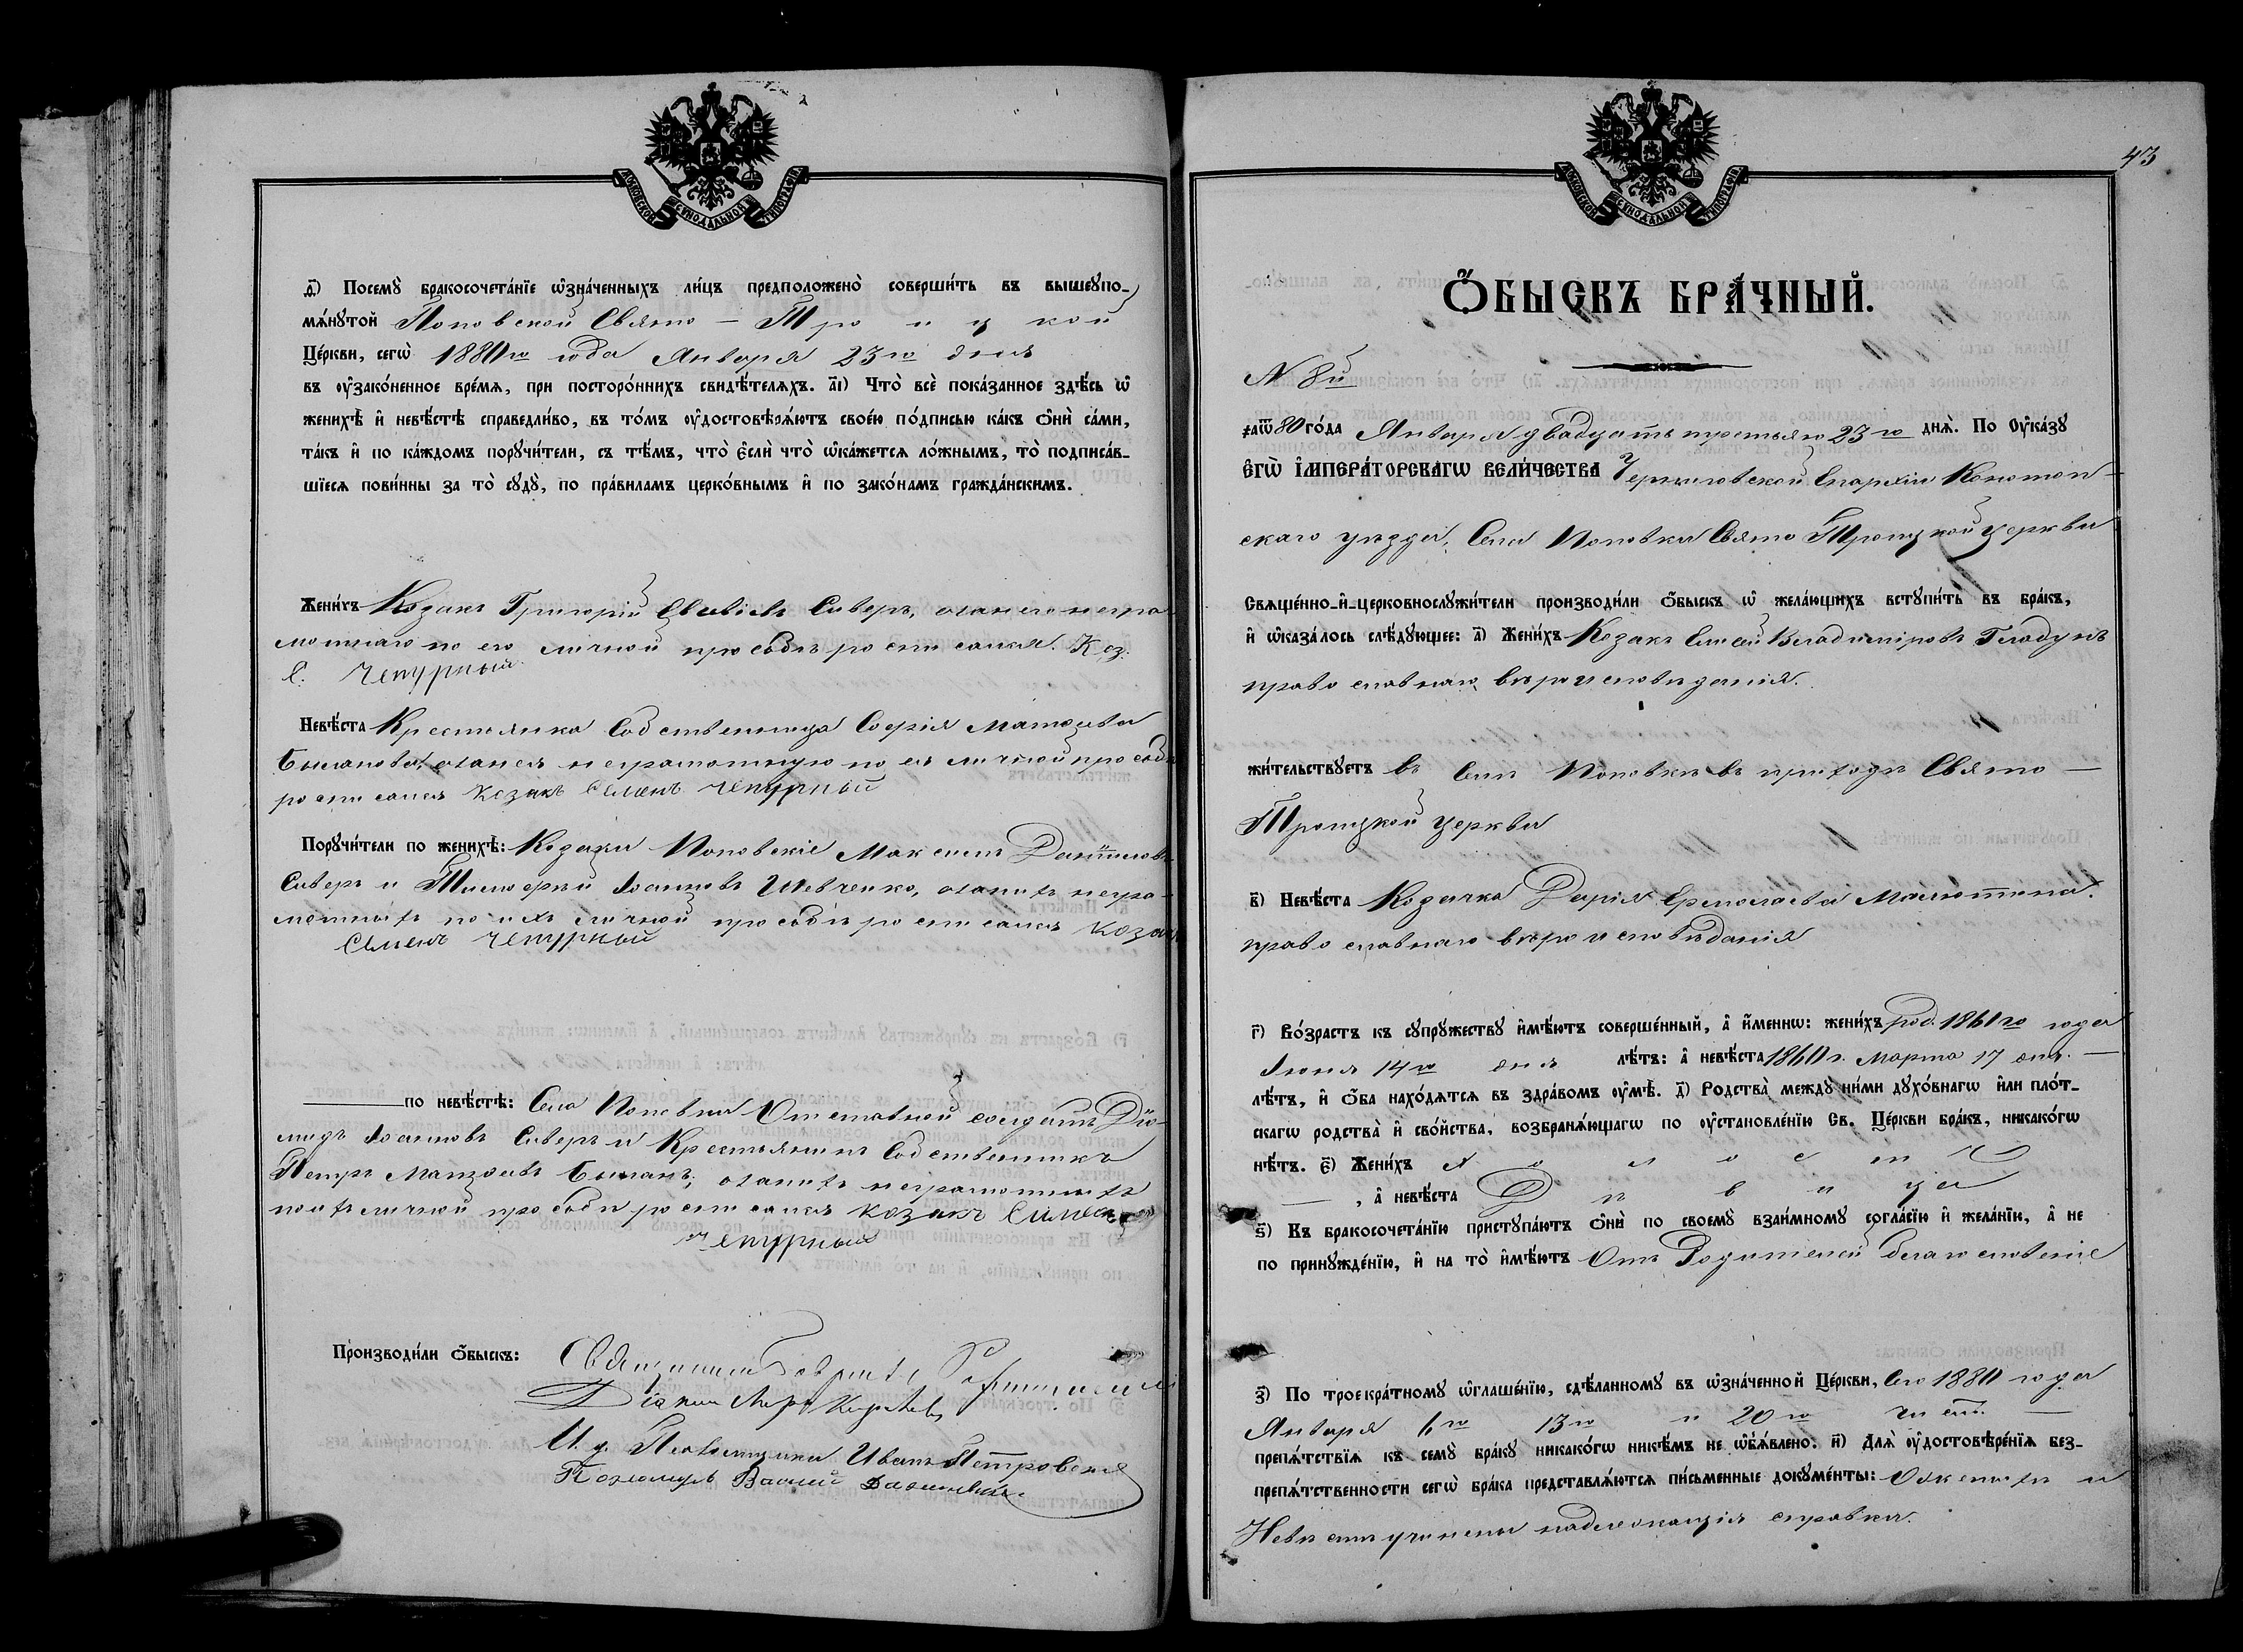 МОСКОВСКОЙ СѴНОДАЛЬНОЙ ТИПОГРАФІИ
і҃) Посемꙋ̀ бракосочета́нїе ѡ҆зна́ченныхъ ли́цъ предположено̀ соверши́ть въ вышеꙋпо-
мѧ́нꙋтой Поповской Свято - Троицкой
Це́ркви, сегѡ̀ 1880го года Января 23го дня
въ ᲂу҆зако́ненное вре́мѧ, при посторо́ннихъ свидѣ́телѧхъ. а҃і) Что̀ всѐ пока́занное здѣ́сь ѡ҆
женихѣ̀ и҆ невѣ́стѣ справедли́во, въ то́мъ ᲂу҆достовѣрѧ́ютъ свое́ю по́дписью ка́къ ѻ҆нѝ са́ми,
та́къ и҆ по ка́ждомъ порꙋчи́тели, съ тѣ́мъ, что̀ є҆слѝ что̀ ѡ҆ка́жетсѧ ло́жнымъ, то̀ подписа́в-
шїесѧ пови́нны за то̀ сꙋдꙋ̀, по пра́виламъ церко́внымъ и҆ по зако́намъ гражда́нскимъ.
Жени́хъ Козакъ Григорій Сиверъ, а за него неграмотнаго по его личной прозьбѣ росписался Коз.
С. Чепурный
Невѣ́ста Крестьянка Собственница Софія Матѳеева
Быланова, а за нея неграмотную по ея личной прозьбѣ
росписался козакъ Семенъ Чепурный
Порꙋчи́тели по женихѣ̀: Козаки Поповскіе Максимъ Даніиловъ
Сиверъ и Тимоѳей Іоанновъ Шевченко, а за нихъ негра-
мотныхъ по ихъ личной прозьбѣ росписался козакъ
Семенъ Чепурный
по невѣ́стѣ: Села Поповки Отставной солдатъ Діо-
мидъ Іоанновъ Сиверъ и Крестьянинъ Собственникъ
Петръ Матѳеевъ Быланъ, а за нихъ неграмотныхъ
по ихъ личной прозьбѣ росписался козакъ Семенъ
Чепурный
Производи́ли ѻ҆́быскъ: Священникъ
Діаконъ
И. д. Псаломщика Иванъ Петровскій
Пономарь Василій
МОСКОВСКОЙ СѴНОДАЛЬНОЙ ТИПОГРАФІИ
43
Ѻ҆́БЫСКЪ БРА́ЧНЫЙ.
N 8й
҂аѿ 80 го́да Января двадцать третьяго 23го днѧ̀. По Оу҆ка́зꙋ
Є҆ГѠ̀ І҆МПЕРА́ТОРСКАГѠ ВЕЛИ́ЧЕСТВА Черниговской Епархіи Конотоп-
скаго уѣзда, Села Поповки Свято Троицкой церкви
Свѧще́нно-и҆-церковнослꙋжи́тели производи́ли ѻ҆́быскъ ѡ҆ жела́ющихъ встꙋпи́ть въ бра́къ,
и҆ ѡ҆каза́лось слѣ́дꙋющее: а҃) Жени́хъ Козакъ Елисей Владиміровъ Гладунъ
православнаго вѣроисповѣданія.
жи́тельствꙋетъ въ Селѣ Поповкѣ въ приходѣ Свято -
Троицкой церкви
в҃) Невѣ́ста Козачка Дарія Ермолаева Малютина.
православнаго вѣроисповѣданія
г҃) Во́зрастъ къ сꙋпрꙋ́жествꙋ и҆мѣ́ютъ соверше́нный, а҆ и҆́меннѡ: жени́хъ род. 1861го года
Іюня 14го дня лѣ́тъ: а҆ невѣ́ста 1860 г. Марта 17 дня. -
лѣ́тъ, и҆ ѻ҆́ба нахо́дѧтсѧ въ здра́вомъ ᲂу҆мѣ̀. д҃) Родства̀ междꙋ ни́ми дꙋхо́внагѡ и҆лѝ пло́т-
скагѡ родства̀ и҆ сво́йства, возбранѧ́ющагѡ по ᲂу҆становле́нїю Св. Це́ркви бра́къ, никако́гѡ
нѣ́тъ. є҃) Жени́хъ Холостъ
, а҆ невѣ́ста Дѣвица
ѕ҃) Къ бракосочета́нїю пристꙋпа́ютъ ѻ҆нѝ по своемꙋ̀ взаи́мномꙋ согла́сїю и҆ жела́нїю, а҆ не
по принꙋжде́нїю, и҆ на то̀ и҆мѣ́ютъ Отъ Родителей благословеніе
з҃) По троекра́тномꙋ ѡ҆глаше́нїю, сдѣ́ланномꙋ въ ѡ҆зна́ченной Це́ркви, Сего 1880 года
Января 6го 13го и 20го числ. -
препѧ́тствїѧ къ семꙋ̀ бра́кꙋ никако́гѡ никѣ́мъ не ѡ҆б̾ѧ́влено. и҃) Длѧ̀ ᲂу҆достовѣре́нїѧ без-
препѧ́тственности сегѡ̀ бра́ка представлѧ́ютсѧ пи́сьменные докꙋме́нты: О женихѣ и
Невѣстѣ учинены надлежащія справки.